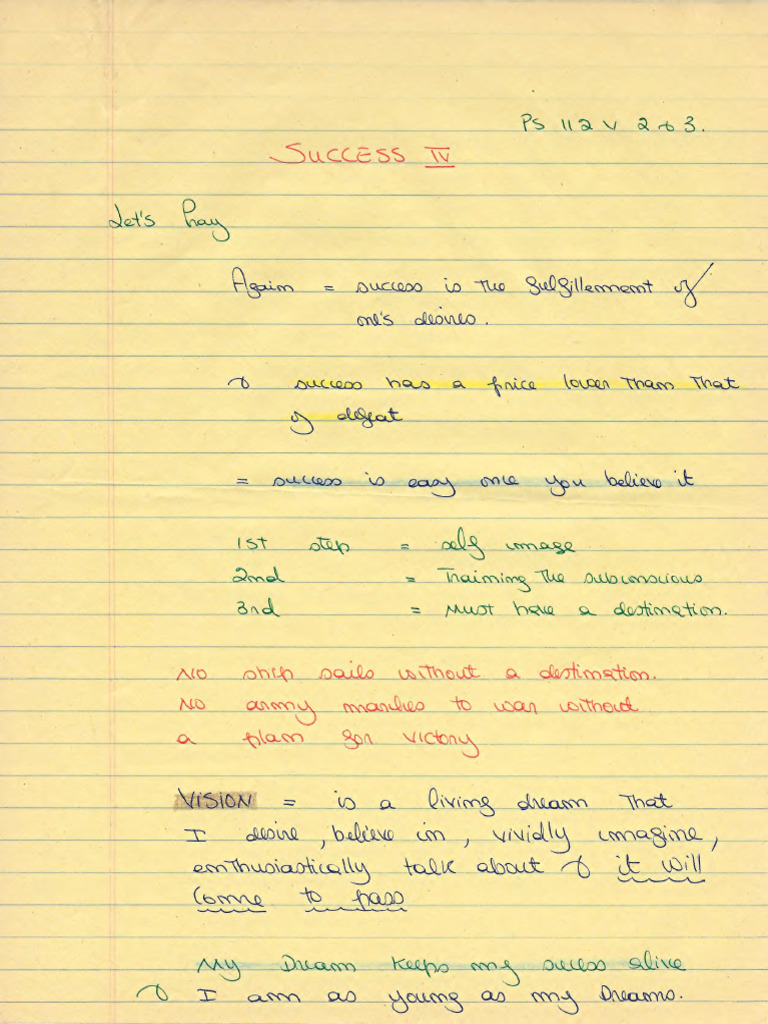 PS 112 v 2 & 3.
SUCCESS IV
Let's Pray
Again = success is the fulfillement of
one's desires.
& success has a price lower than that
of defeat
= success is easy once you believe it
1st step = self image
2nd = Training the subconscious
3rd = Must have a destination.
No ship sails without a destination.
No army marches to war without
a plan for victory
VISION = is a living dream that
I desire, believe in, vividly imagine,
enthusiastically talk about & it will
come to pass
My Dream keeps my sucess alive
& I am as young as my Dreams.